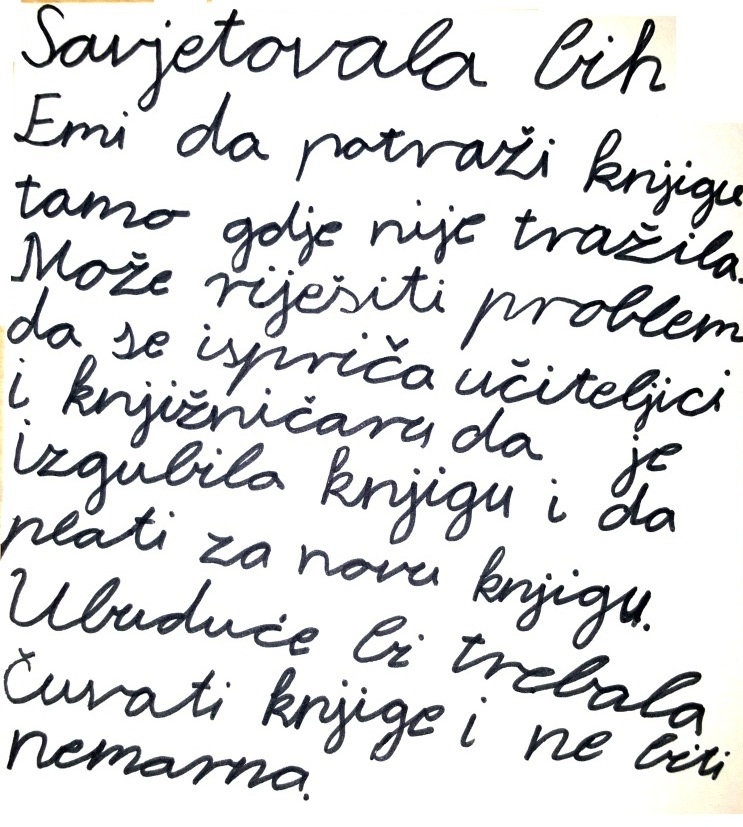 Savjetovala bih
Emi da potraži knjigu
tamo gdje nije tražila.
Može riješiti problem
da se ispriča učiteljici
i knjižničaru da je
izgubila knjigu i da
plati za novu knjigu.
Ubuduće bi trebala
čuvati knjige i ne biti
nemarna.